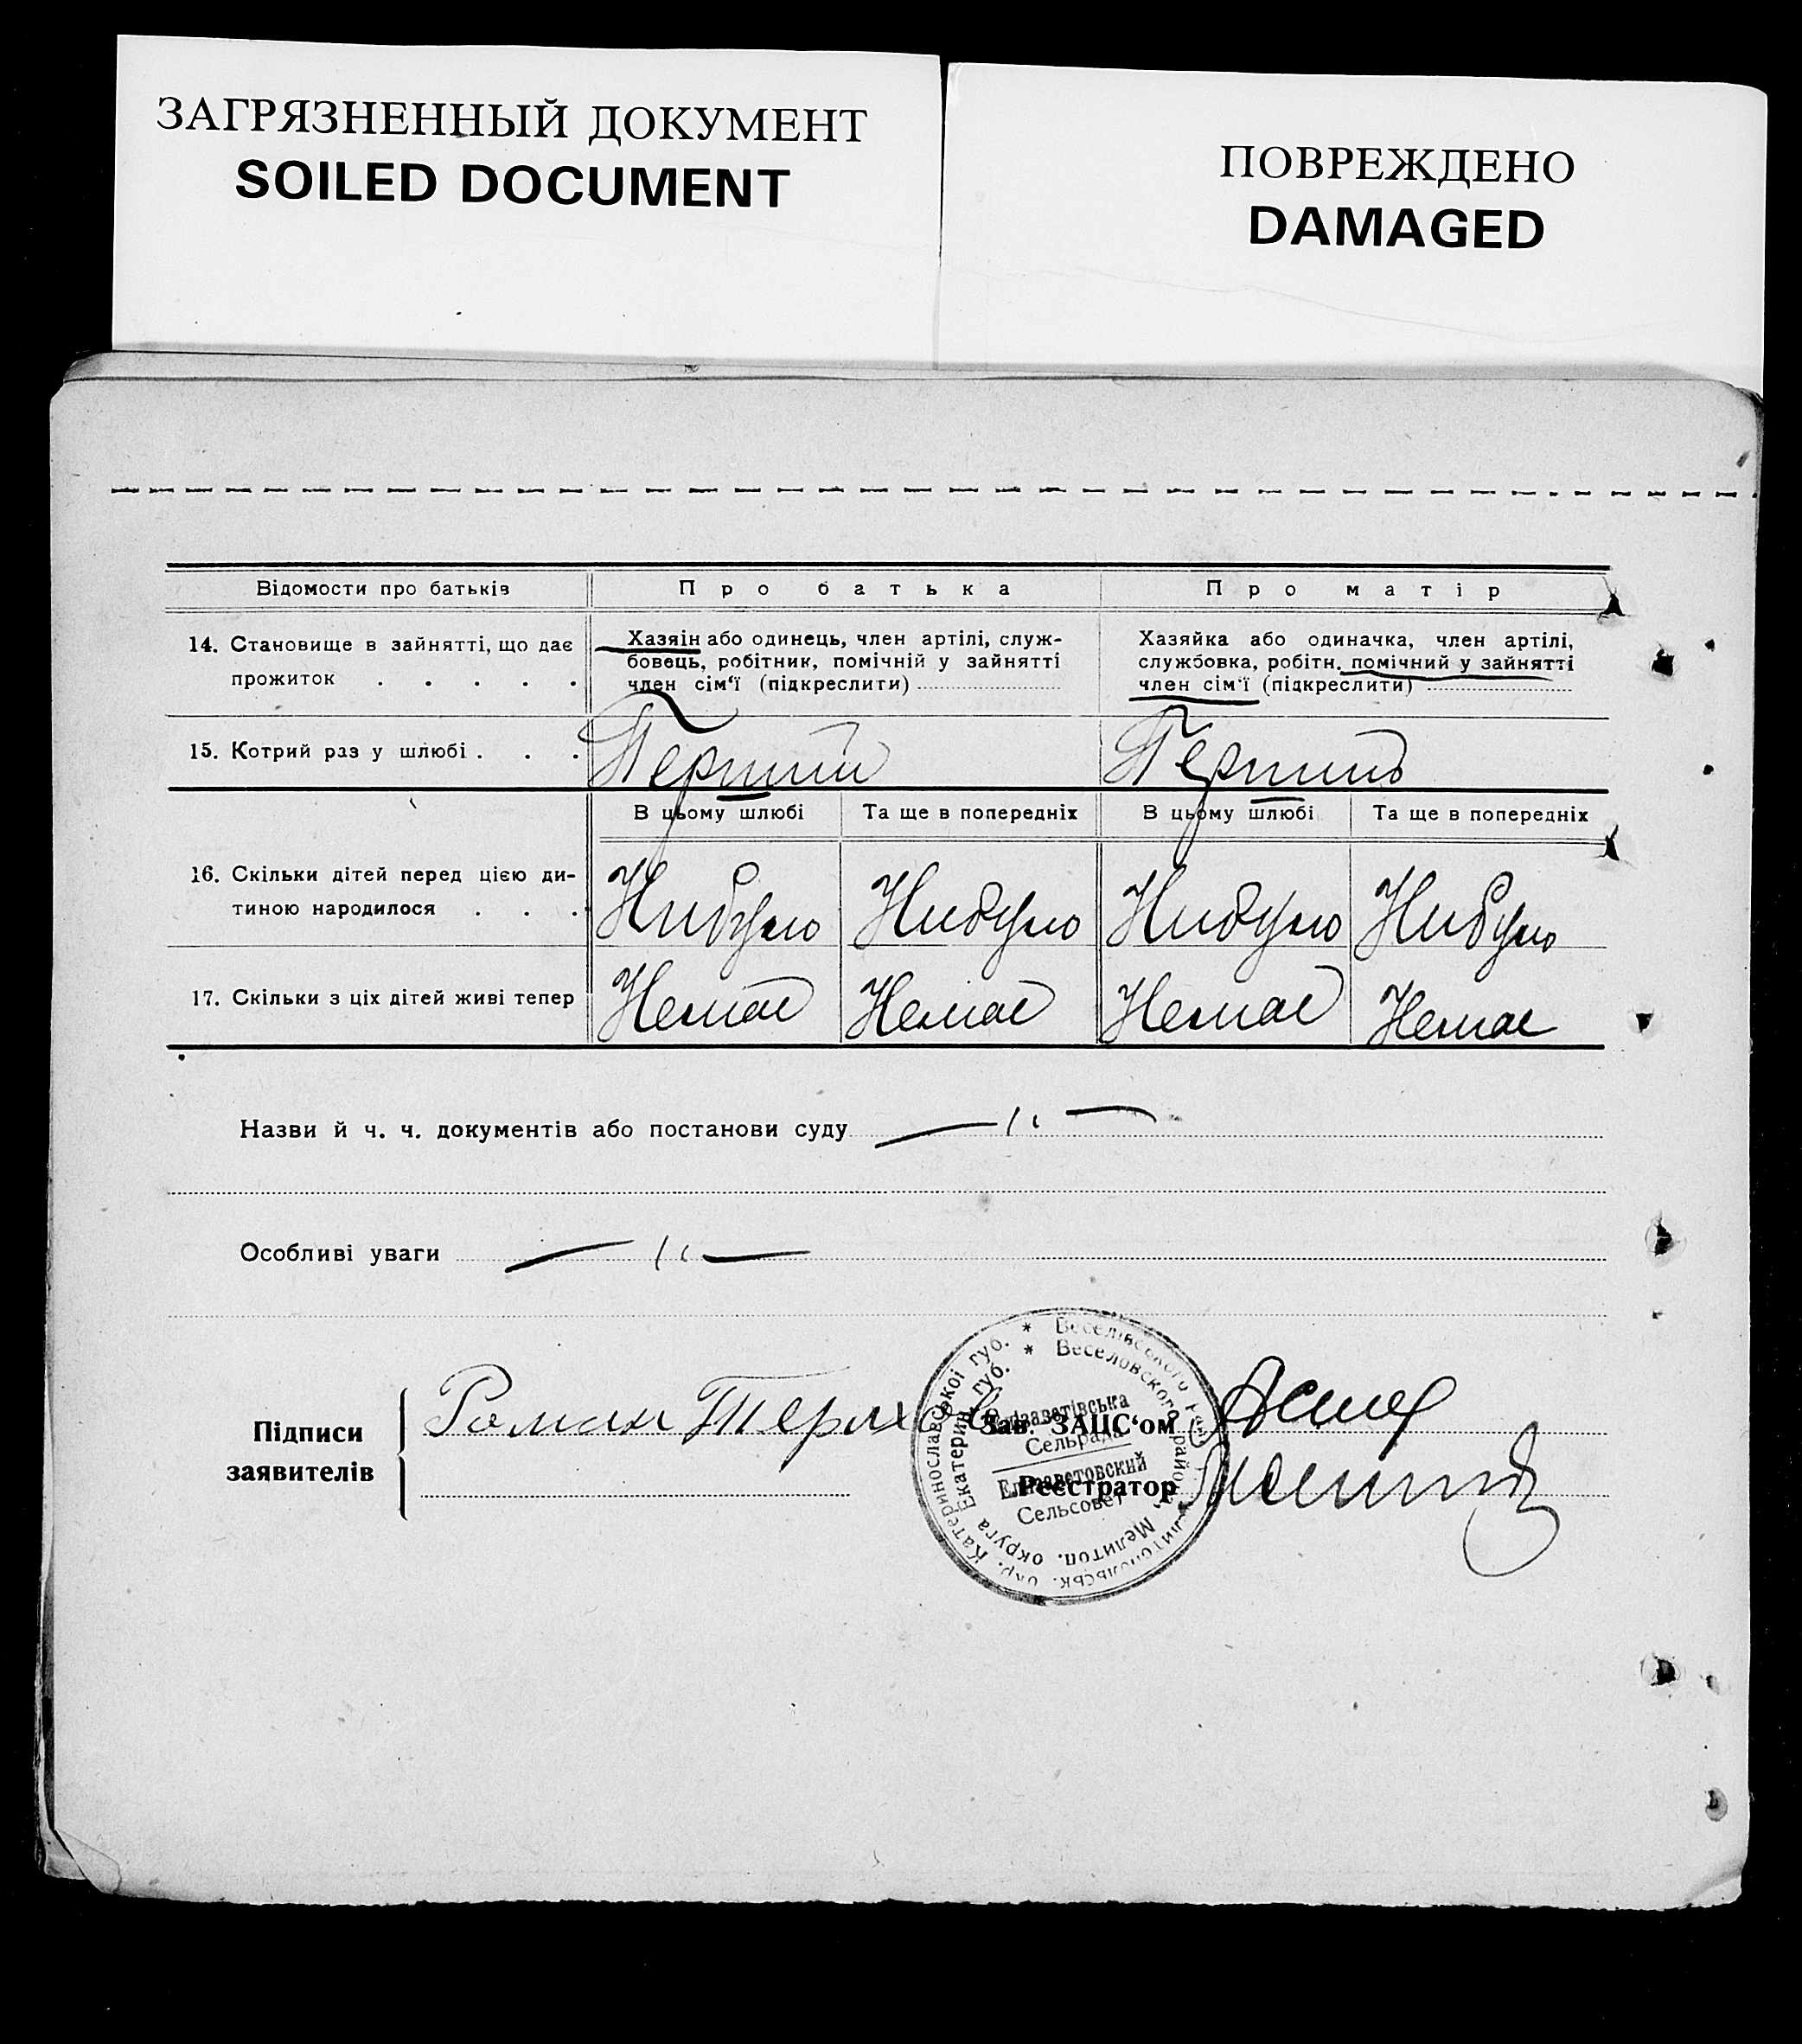 ЗАГРЯЗНЕННЫЙ ДОКУМЕНТ
SOILED DOCUMENT
ПОВРЕЖДЕНО
DAMAGED
Відомости про батьків
Про батька
Про матір
14. Становище в зайнятті, що дає
прожиток . . . . .
Хазяін або одинець, член артілі, служ-
бовець, робітник, помічній у зайнятті
член сім‘ї (підкреслити)
Хазяйка або одиначка, член артілі,
службовка, робітн. помічний у зайнятті
член сім‘ї (підкреслити)
15. Котрий раз у шлюбі . . .
Перший
Перший
В цьому шлюбі
Та ще в попередніх
В цьому шлюбі
Та ще в попередніх
16. Скільки дітей перед цією ди-
тиною народилося . . .
Нибуло
Нибуло
Нибуло
Нибуло
17. Скільки з ціх дітей живі тепер
Немає
Немає
Немає
Немає
Назви й ч. ч. документів або постанови суду — 〃 —
Особливі уваги — 〃 —
Підписи
заявителів
Роман
Зав. ЗАЦС‘ом
Реєстратор
* Веселівського окр. Катеринославської губ.
* Веселовского района Мелитоп. округа Екатерин. губ.
Єлізаветівська
Сельрада
Елизаветовский
Сельсовет